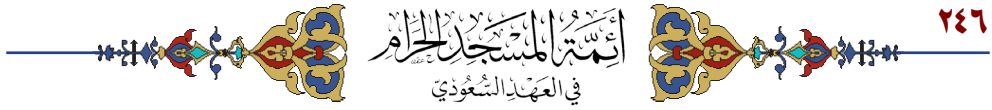 ٢٤٦
أَئِمَّةُ المَسْجِدِ الحَرَامِ
فِي العَهْدِ السُّعُودِيّ